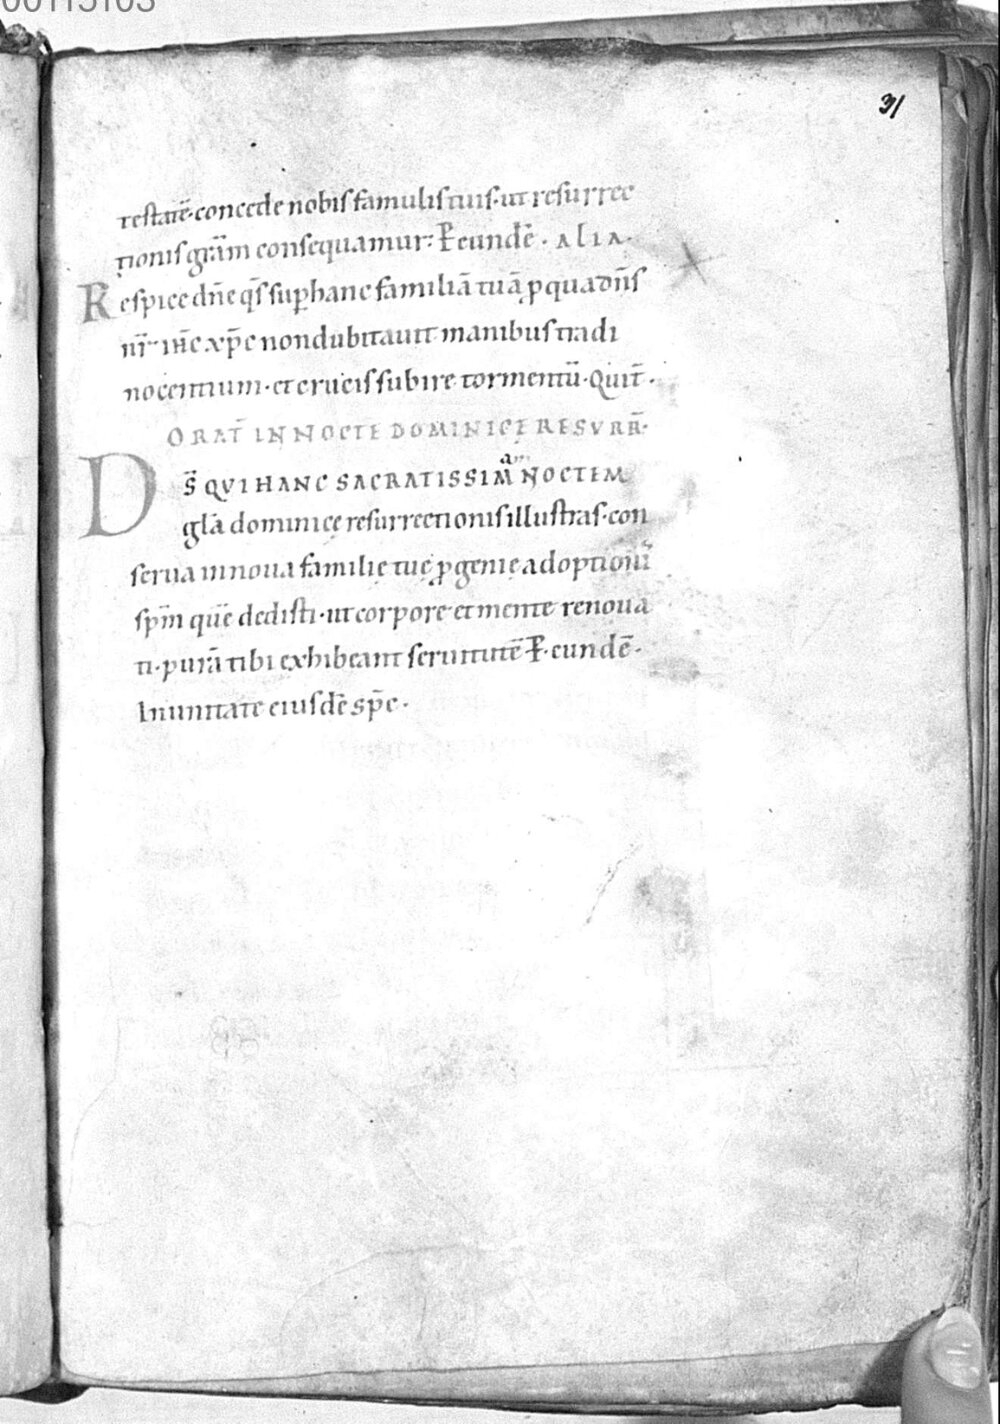 00115103
31
testatē·concede nobis famulis tuis·ut resurrec
tionis grām consequamur: P̄ eundē· ALIA·
Respice dn̄e qs̄ sup hanc familiā tuā p qua dn̄s
nr̄ ih̄c xp̄c non dubitauit manibus tradi
nocentium·et crucis subire tormentū·Quit̄·
ORAT̄ IN NOCTE DOMINICĘ RESURR̄·
DS̄ QVI HANC SACRATISSIMAM NOCTEM
glā dominicę resurrectionis illustras·con
serua in noua familię tuę p̱genię adoptionis
spm̄ quē dedisti·ut corpore et mente renoua
ti·purā tibi exhibeant seruitutē P̄·eundē·
In unitate eiusdē sp̄c·